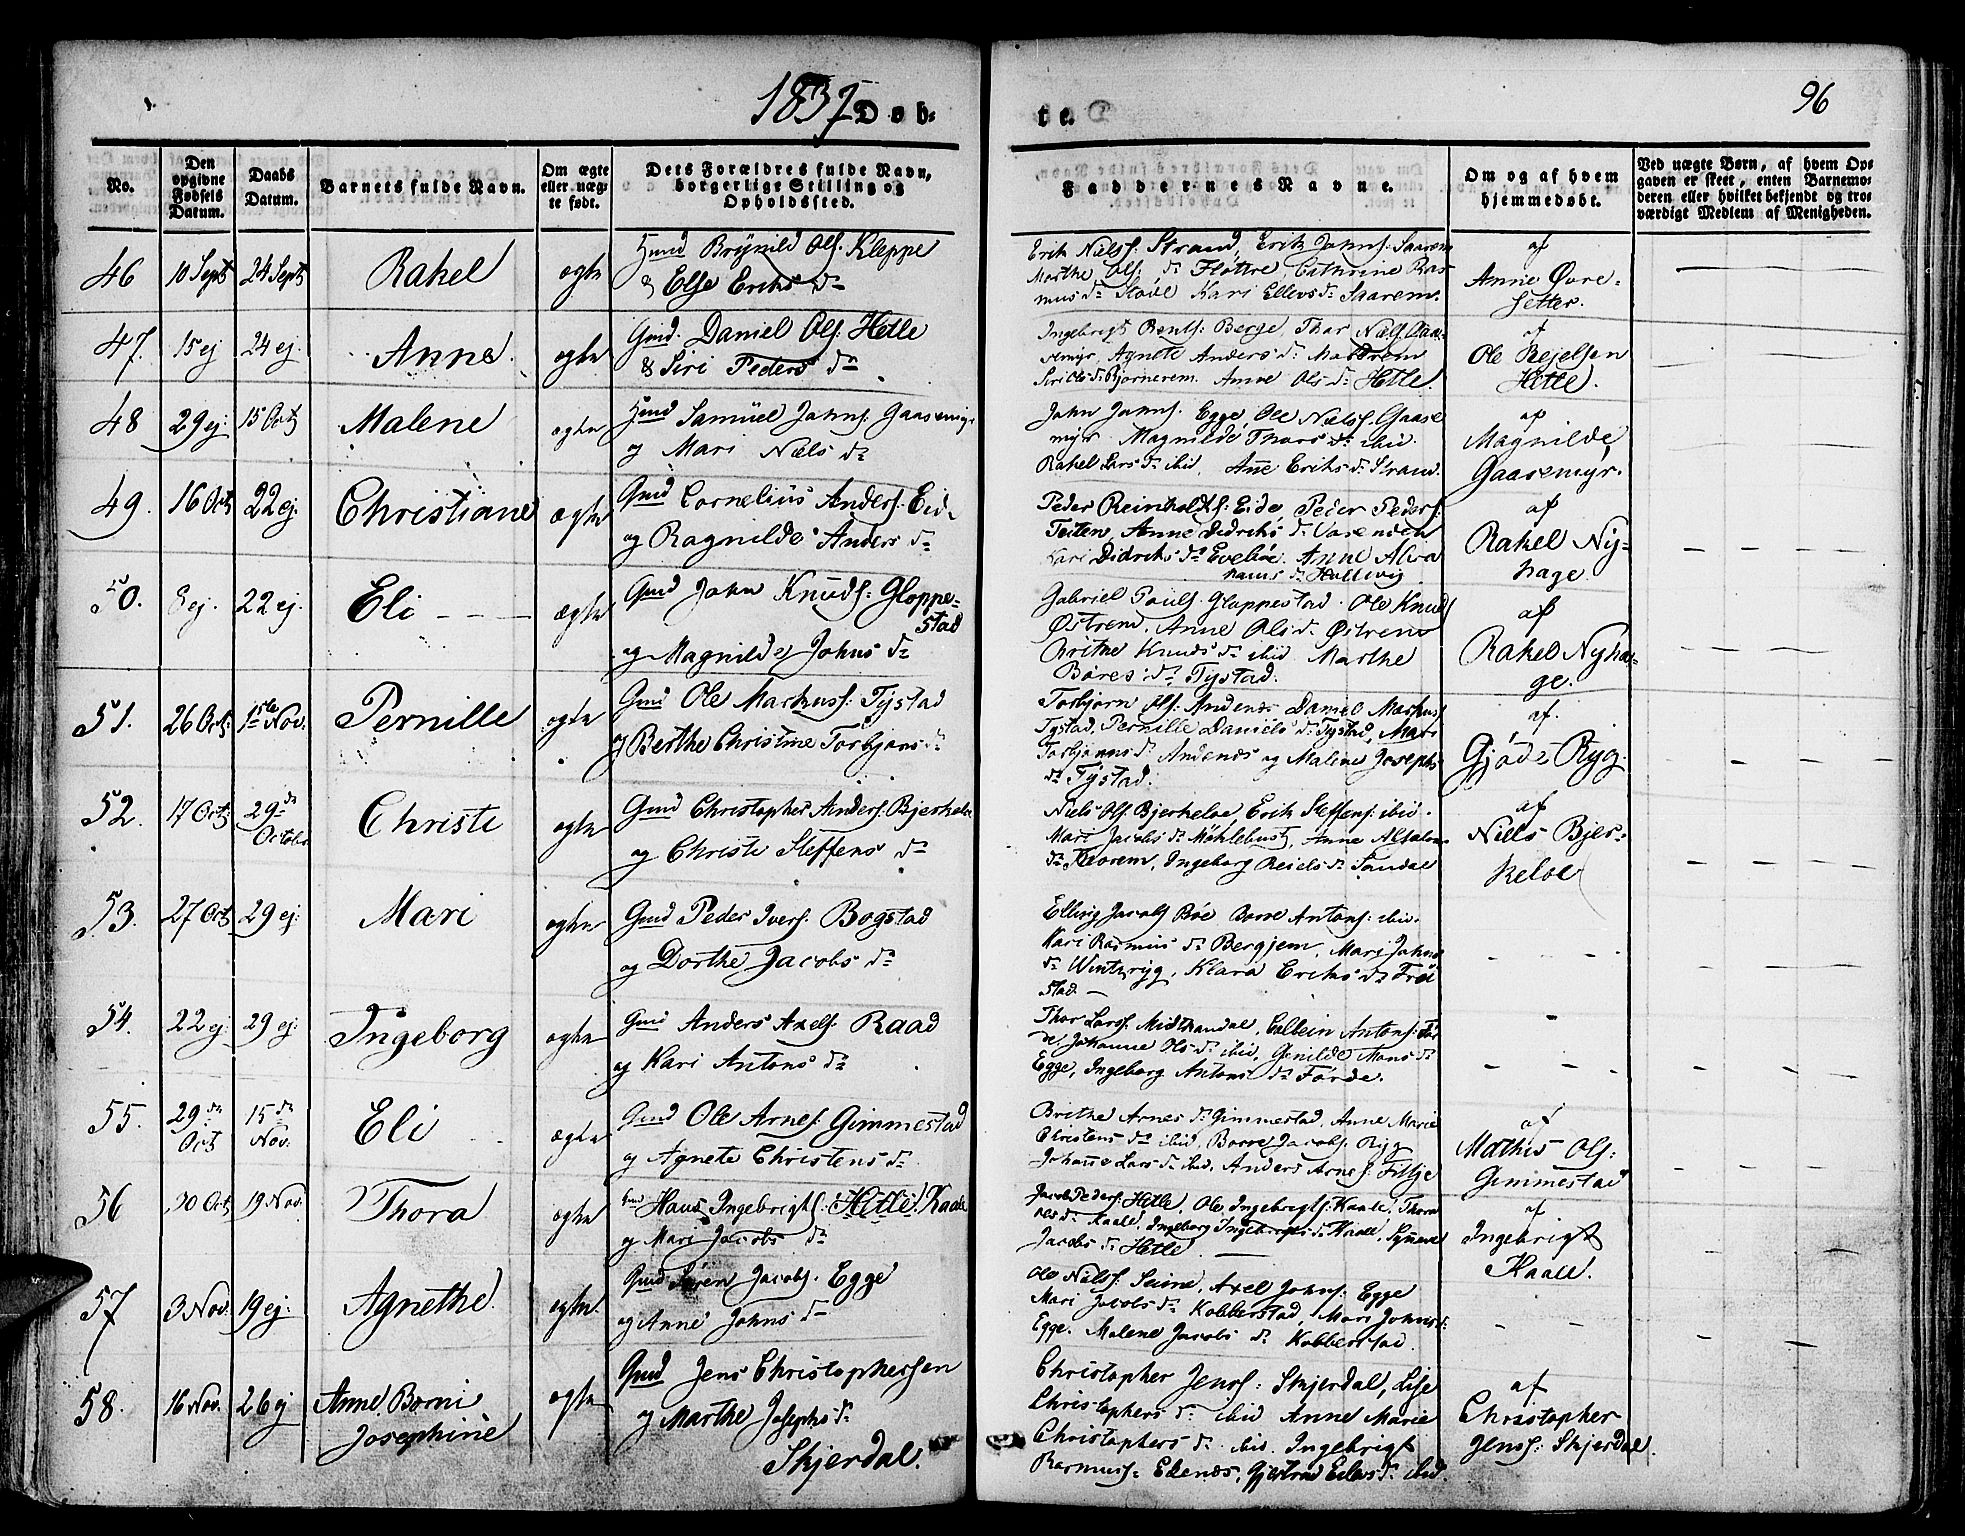 1837 Døb-
te.
96
No.
Den opgivne Fødsels Datum.
Daabs Datum.
Barnets fulde Navn.
Om ægte eller uæg- te født.
Dets Forældres fulde Navn, borgerlige Stilling og Opholdssted.
Faddernes Navne.
Om og af hvem hjemmedøbt.
Ved uægte Børn, af hvem Op-
gaven er skeet, enten Barnemo-
deren eller hvilket bekjendt og tro-
værdigt Medlem af Menigheden.
46 10 Sept 24 Sept Rakel ægte
Gmd Brynild Ols. Kleppe
& Else Eriks Dr
Erik Niels. Strand, Erik Johns. Saarem
Marthe Ols. dr Fløttre, Cathrine Ras-
mus dr Støve Kari Ellevs dr Saarem.
af
Anne Øvre-
setter.
47. 15 ej 24 ej. Anne. ægte
Gmd. Daniel Ols. Hetle
& Siri Peders dr
Ingebrigt Bents: Berge Thor Næls. Gaa-
semyr, Agnete Anders dr
Siri Ols dr Bjørnerem. Anne Ols dr Hetle.
af
Ole Rejelsen
Hetle.
48 29 ej. 15 Oct Malene ægte
Gmd Samuel Johns. Gaasemyr
og Mari Næls dr
John Johns. Egge, Ole Næls. Gaase
myr Magnilde Thors dr ibid.
Rakel Lars dr ibid, Añe Eriks dr Strand.
af
Magnilde
Gaasemyr.
49. 16 Oct 22 ej. Christiane ægte
Gmd Cornelius Anders. Eid.
og Ragnilde Anders dr
Peder Reinholdts. Eide Peder Peders:
Teiten, Anne Didriks dr Vareneen
Kari Didriks dr Evebøe. Anne Abra
hams dr Hollevig
af
Rakel Ny-
hage.
50. 8 ej. 22 ej. Eli ægte
Gmd John Knuds: Gloppe-
stad
og Magnilde Johns dr
Gabriel Pouls. Gloppestad. Ole Knuds
Østrem. Anne Ols dr Østrem
Brithe Knuds dr ibid Marthe
Børes: dr Tystad.
af
Rakel Nyha-
ge.
51. 26 Oct: 1ste Nov. Pernille ægte
Gmd Ole Markuss: Tystad
og Berthe Christine Torbjøns dr
Torbjørn Ols: Andenes Daniel Markuss
Tystad, Pernille Daniels dr Tystad, Mari
Torbjønns dr Andenes og Malene Josephs
dr Tystad.
af.
Gjøde Ryg.
52. 17 Oct 29de October Christi ægte
Gmd Christopher Anders. Bjerkeloe
og Christi Steffens dr
Niels Ols. Bjerkeloe, Erik Steffens: ibid.
Mari Jacobs dr Møhlebust, Anne Absalons
dr Florem, Ingeborg Reiels dr Sandal
af
Niels Bjer-
keloe
53. 27 Oct 29 ej. Mari ægte
Gmd Peder Ivers. Bogstad
og Dorthe Jacobs dr
Elling Jacobs Bøe Borre Antons: ibid.
Kari Rasmus dr Bergjem, Mari Johns
dr Winteryg, Klara Eriks dr Frøi
stad
54. 22 ej. 29 ej. Ingeborg ægte
Gmd Anders Axels. Raad
og Kari Antons dr
Thor Larss. Midthandal, Antons: Før
de, Johanne Ols dr ibid, Gunilde Mons dr
Egge, Ingeborg Antons dr Førde.
55. 29de Oct 15de Nov. Eli ægte
Gmd Ole Arnes. Gimmestad
og Agnete Christens dr
Brithe Arnes dr Gimmestad, Anne Marie
Christens dr ibid, Borre Jacobs. Ryg
Johañe Lars dr ibid. Anders Arnes: Fitje
af
Mathis Ols:
Gimmestad
56 30 Oct 19 Nov. Thora ægte
Gmd Hans Ingebrigts: Hetle. Kaale
og Mari Jacobs dr
Jacob Peders: Hetle, Ole Ingebrigts. Kaale, Thora
Ols dr Kaale, Ingeborg Ingebrigts dr Kaale, Synneve
Jacobs dr Hetle.
af
Ingebrigt
Kaale.
57 3 Nov. 19 ej. Agnethe. ægte
Gmd Søren Jacobs. Egge
og Anne Johns dr
Ole Niels: Seime, Axel Johns: Egge
Mari Jacobs dr Kobberstad, Mari Johns dr
Egge. Malene Jacobs dr Kobberstad.
58. 16 Nov. 26 ej Anne Borni
Josephine ægte
Gmd Jens Christophersen
og Marthe Josephs dr
Skjerdal.
Christopher Jenss: Skjerdal, Lise
Christophers dr ibid Anne Marie
Christophers dr ibid. Ingebrigt
Rasmuss. Edenes, Gjertrud Ellevs dr ibid.
af
Christopher
Jenss: Skjerdal.